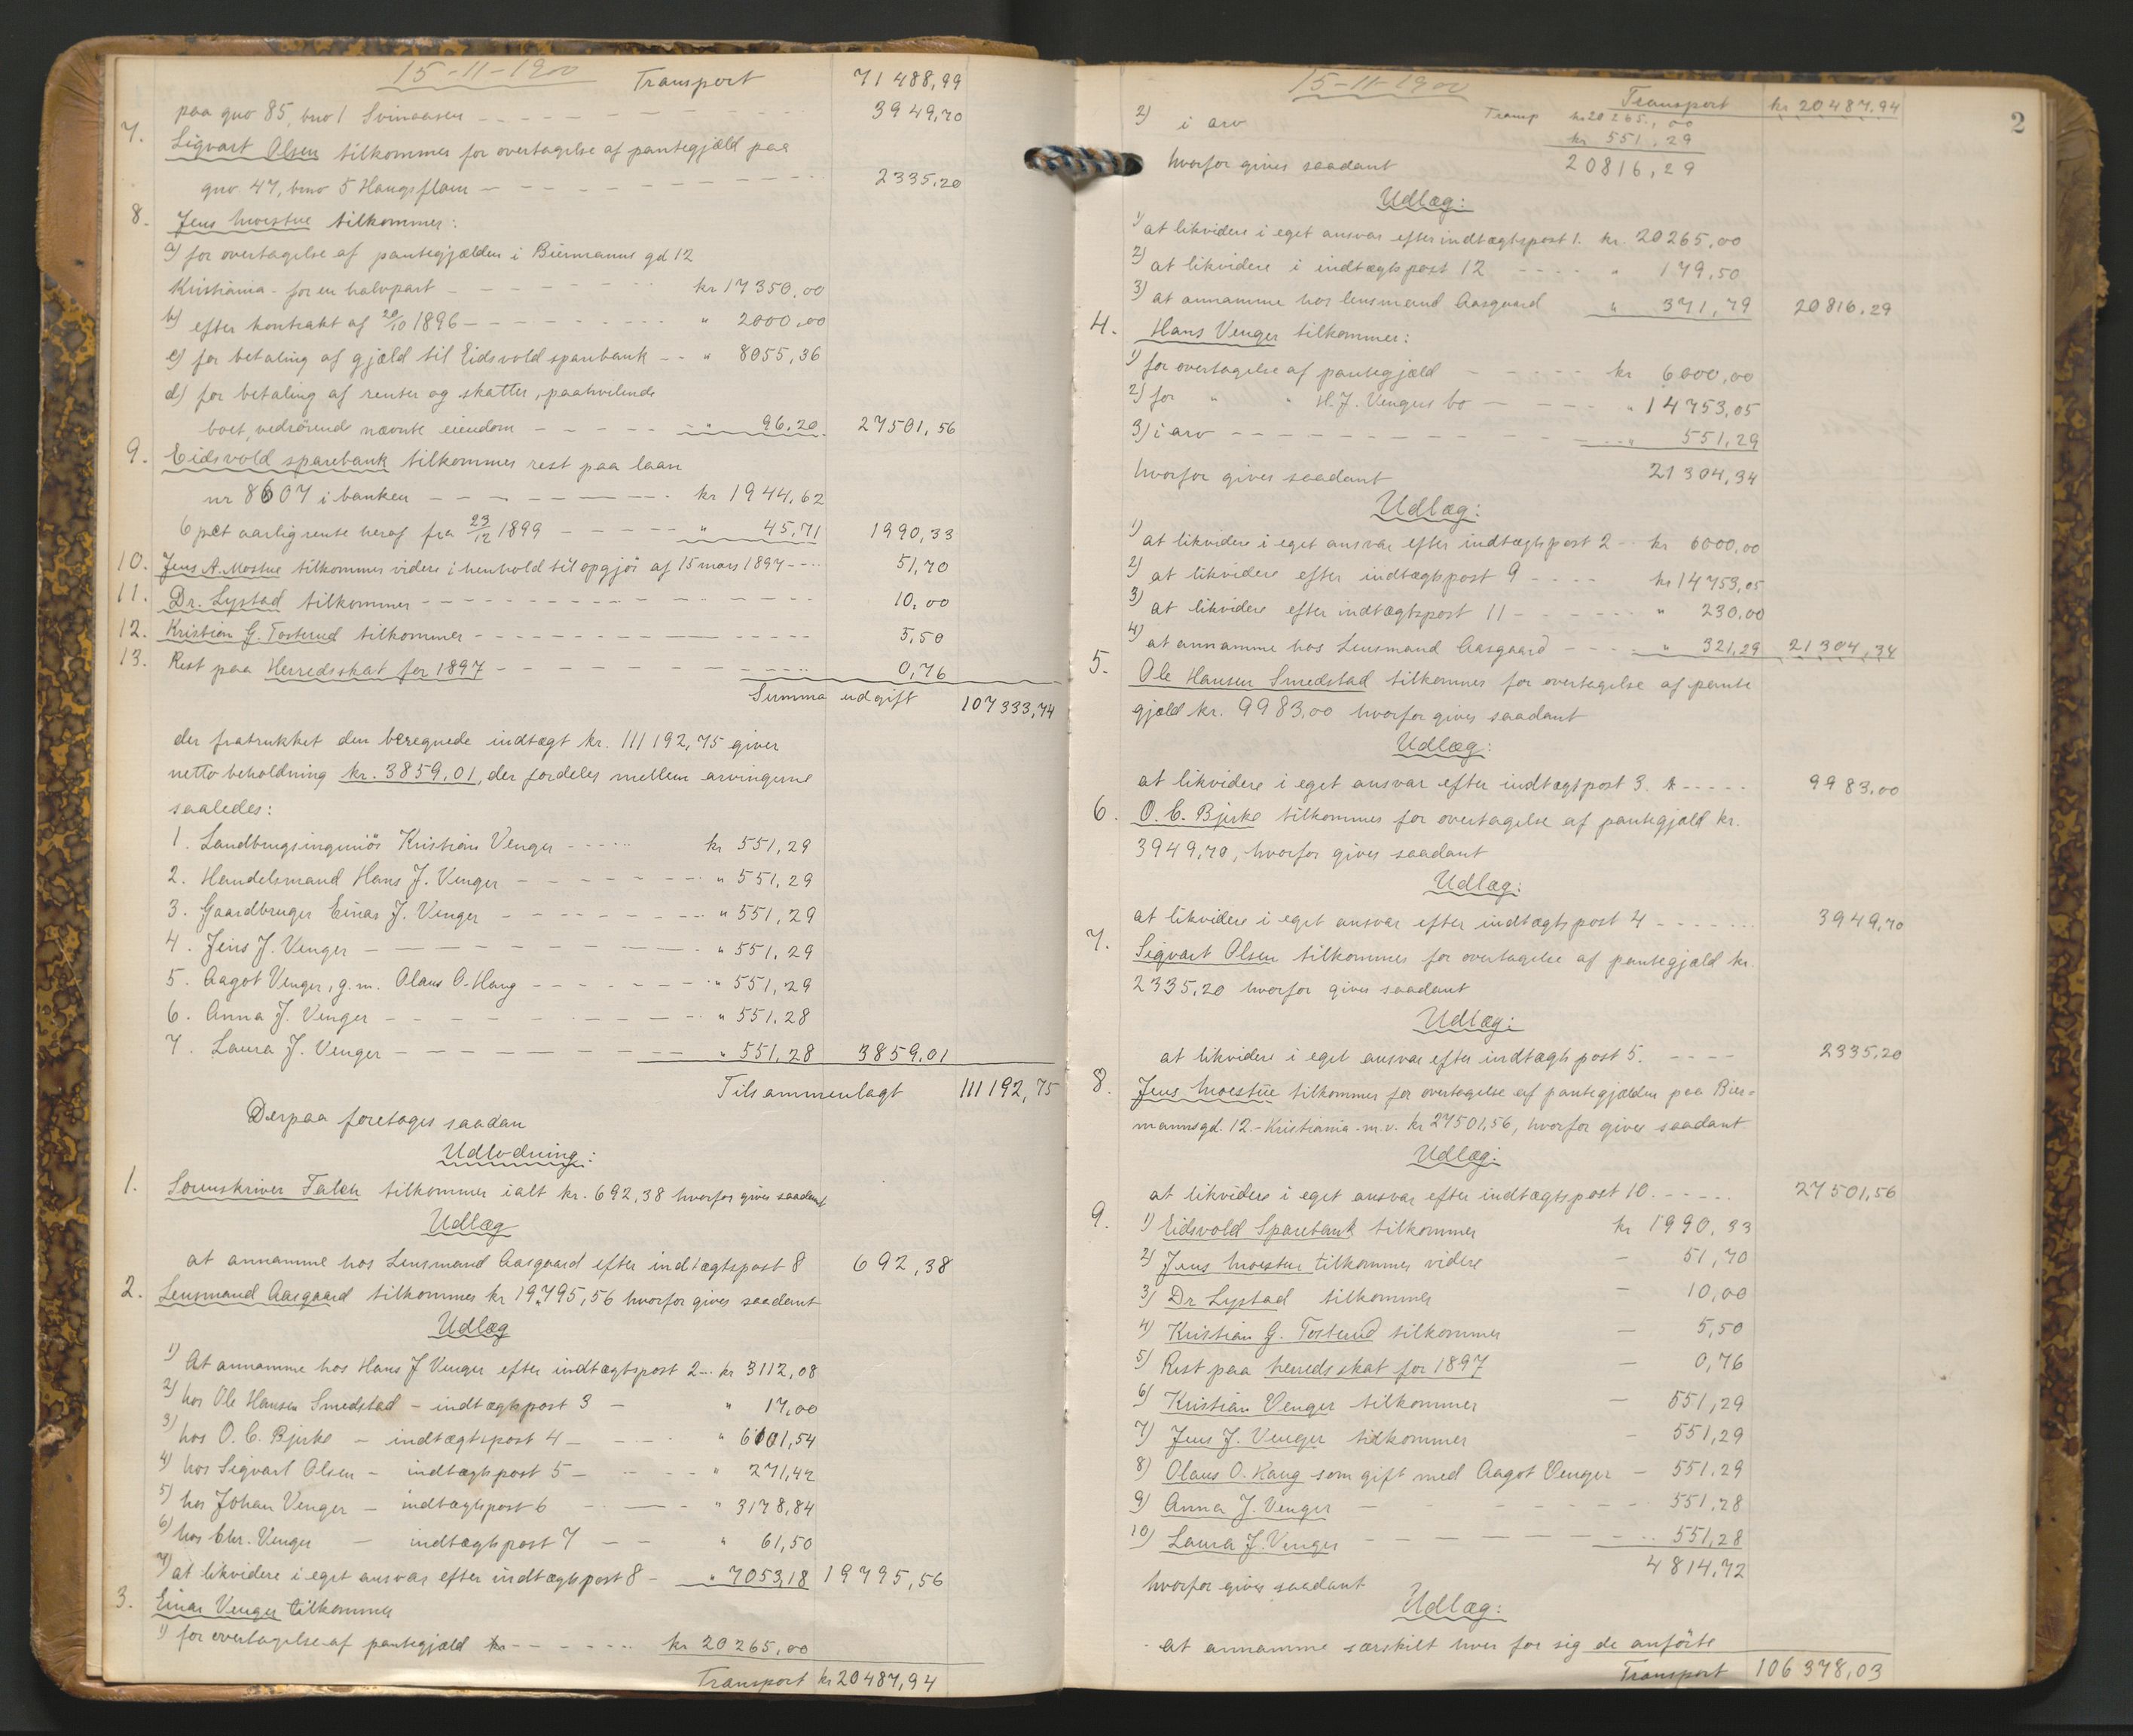 15-11-1900 Transport 71488,99
paa gno 85, bno 1 Svinaasen 3949,70
7. Sigvart Olsen tilkommer for overtagelse af pantegjæld paa
gno. 47, bno 5 Haugsflaen 2335,20
8. Jens Moestue tilkommer:
a) for overtagelse af pantegjælden i Biermanns gd 12
Kristiania - for en halvpart kr 17350,00
b) efter kontrakt af 20/10 1896 " 2000,00
c) for betaling af gjæld til Eidsvold sparebank " 8055,36
d) for betaling af renter og skatter, paahvilende
boet, vedrörende nævnte eiendom " 96,20 27501,56
9. Eidsvold sparebank tilkommer rest paa laan
nr 8607 i banken kr 1944,62
6 pct aarlig rente heraf fra 23/12 1899 " 45,71 1990,33
10. Jens A. Mostue tilkommer videre i henhold til opgjör af 15 mars 1897 51,70
11. Dr. Lystad tilkommer 10,00
12. Kristian G. Tosterud tilkommer 5,50
13. Rest paa Herredsskat for 1897 0,76
Summa udgift 107333,74
der fratrukket den beregnede indtægt kr. 111192,75 giver
netto beholdning kr. 3859,01, der fordeles mellem arvingerne
saaledes:
1. Landbrugsingeniör Kristian Venger kr 551,29
2. Handelsmand Hans J. Venger " 551,29
3. Gaardbruger Einar J. Venger " 551,29
4. Jens J. Venger " 551,29
5. Aagot Venger, g.m. Olaus O. Haug " 551,29
6. Anna J. Venger " 551,28
7. Laura J. Venger " 551,28 3859,01
Tilsammenlagt 111192,75
Derpaa foretages saadan
Udlodning:
1. Sorenskriver Falch tilkommer ialt kr. 692,38 hvorfor gives saadant
Udlæg
at annamme hos Lensmand Aasgaard efter indtægtspost 8 692,38
2. Lensmand Aasgaard tilkommer kr 19795,56 hvorfor gives saadant
Udlæg
1) At annamme hos Hans J Venger efter indtægtspost 2 kr 3112,08
2) hos Ole Hansen Smedstad - indtægtspost 3 " 17,00
3) hos O. C. Bjerke - indtægtspost 4 " 6101,54
4) hos Sigvart Olsen - indtægtspost 5 " 271,42
5) hos Johan Venger - indtægtspost 6 " 3178,84
6) hos Chr. Venger - indtægtspost 7 " 61,50
7) at likvidere i eget ansvar efter indtægtspost 8 " 7053,18 19795,56
3. Einar Venger tilkommer
1) for overtagelse af pantegjæld kr 20265,00
Transport kr 20487,94
15-11-1900 Transport kr 20487,94
2
2) i arv Transp kr 20265,00
kr 551,29
hvorfor gives saadant 20816,29
Udlæg:
1) at likvidere i eget ansvar efter indtægtspost 1. kr. 20265,00
2) at likvidere i indtægtspost 12 " 179,50
3) at annamme hos lensmand Aasgaard " 371,79 20816,29
4. Hans Venger tilkommer:
1) for overtagelse af pantegjæld kr 6000,00
2) for " " H. J. Vengers bo " 14753,05
3) i arv " 551,29
hvorfor gives saadant 21304,34
Udlæg:
1) at likvidere i eget ansvar efter indtægtspost 2 kr 6000,00
2) at likvidere efter indtægtspost 9 kr 14753,05
3) at likvidere efter indtægtspost 11 " 230,00
4) at annamme hos Lensmand Aasgaard " 321,29 21304,34
5. Ole Hansen Smedstad tilkommer for overtagelse af pante
gjæld kr. 9983,00 hvorfor gives saadant
Udlæg:
at likvidere i eget ansvar efter indtægtspost 3. 9983,00
6. O. C. Bjerke tilkommer for overtagelse af pantegjæld kr.
3949,70, hvorfor gives saadant
Udlæg:
at likvidere i eget ansvar efter indtægtspost 4 3949,70
7. Sigvart Olsen tilkommer for overtagelse af pantegjæld kr.
2335,20 hvorfor gives saadant
Udlæg:
at likvidere i eget ansvar efter indtægtspost 5. 2335,20
8. Jens Moestue tilkommer for overtagelse af pantegjælden paa Bier=
mannsgd. 12. - Kristiania - m.v. kr 27501,56, hvorfor gives saadant
Udlæg:
at likvidere i eget ansvar efter indtægtspost 10. 27501,56
9. 1) Eidsvold Sparebank tilkommer kr 1990,33
2) Jens Moestue tilkommer videre - 51,70
3) Dr Lystad tilkommer - 10,00
4) Kristian G. Tosterud tilkommer - 5,50
5) Rest paa herredsskat for 1897 - 0,76
6) Kristian Venger tilkommer - 551,29
7) Jens J. Venger tilkommer - 551,29
8) Olaus O. Haug som gift med Aagot Venger - 551,29
9) Anna J. Venger 551,28
10) Laura J. Venger 551,28
4814,72
hvorfor gives saadant
Udlæg:
at annamme særskilt hver for sig de anförte
Transport 106378,03